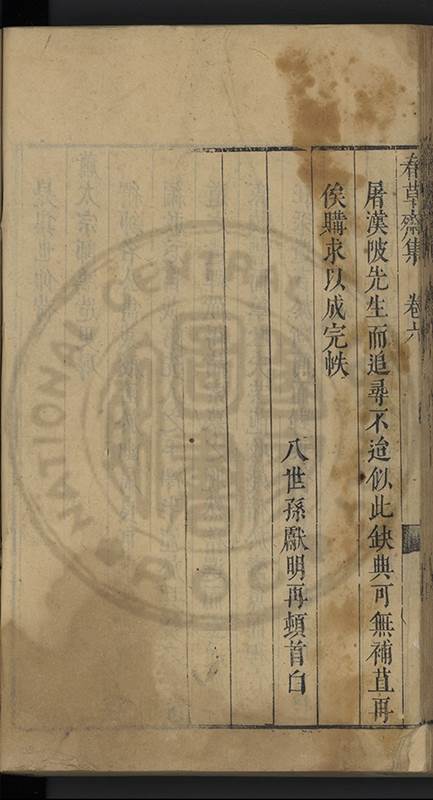 春草齋集 卷六
屠漢陂先生而追尋不迨似此缺典可無補苴再
俟購求以成完帙
八世孫獻明再頓首白
NATIONAL CENTRAL